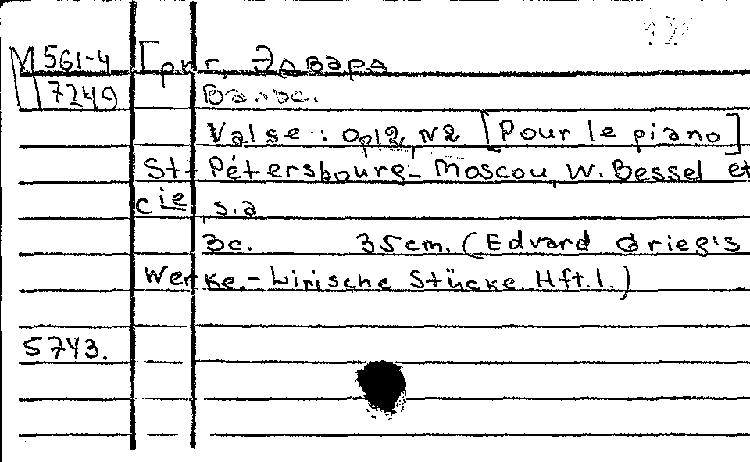 М 561-4 Григ, Эдвард
7249 Вальс.
Valse : Op12, N2 [Pour le piano]
St-Pétersbourg-Moscou, W. Bessel et
cie, s.a
3с. 35cm. (Edvard Grieg's
Werke.-Lirische Stücke Hft.1.)
5743.